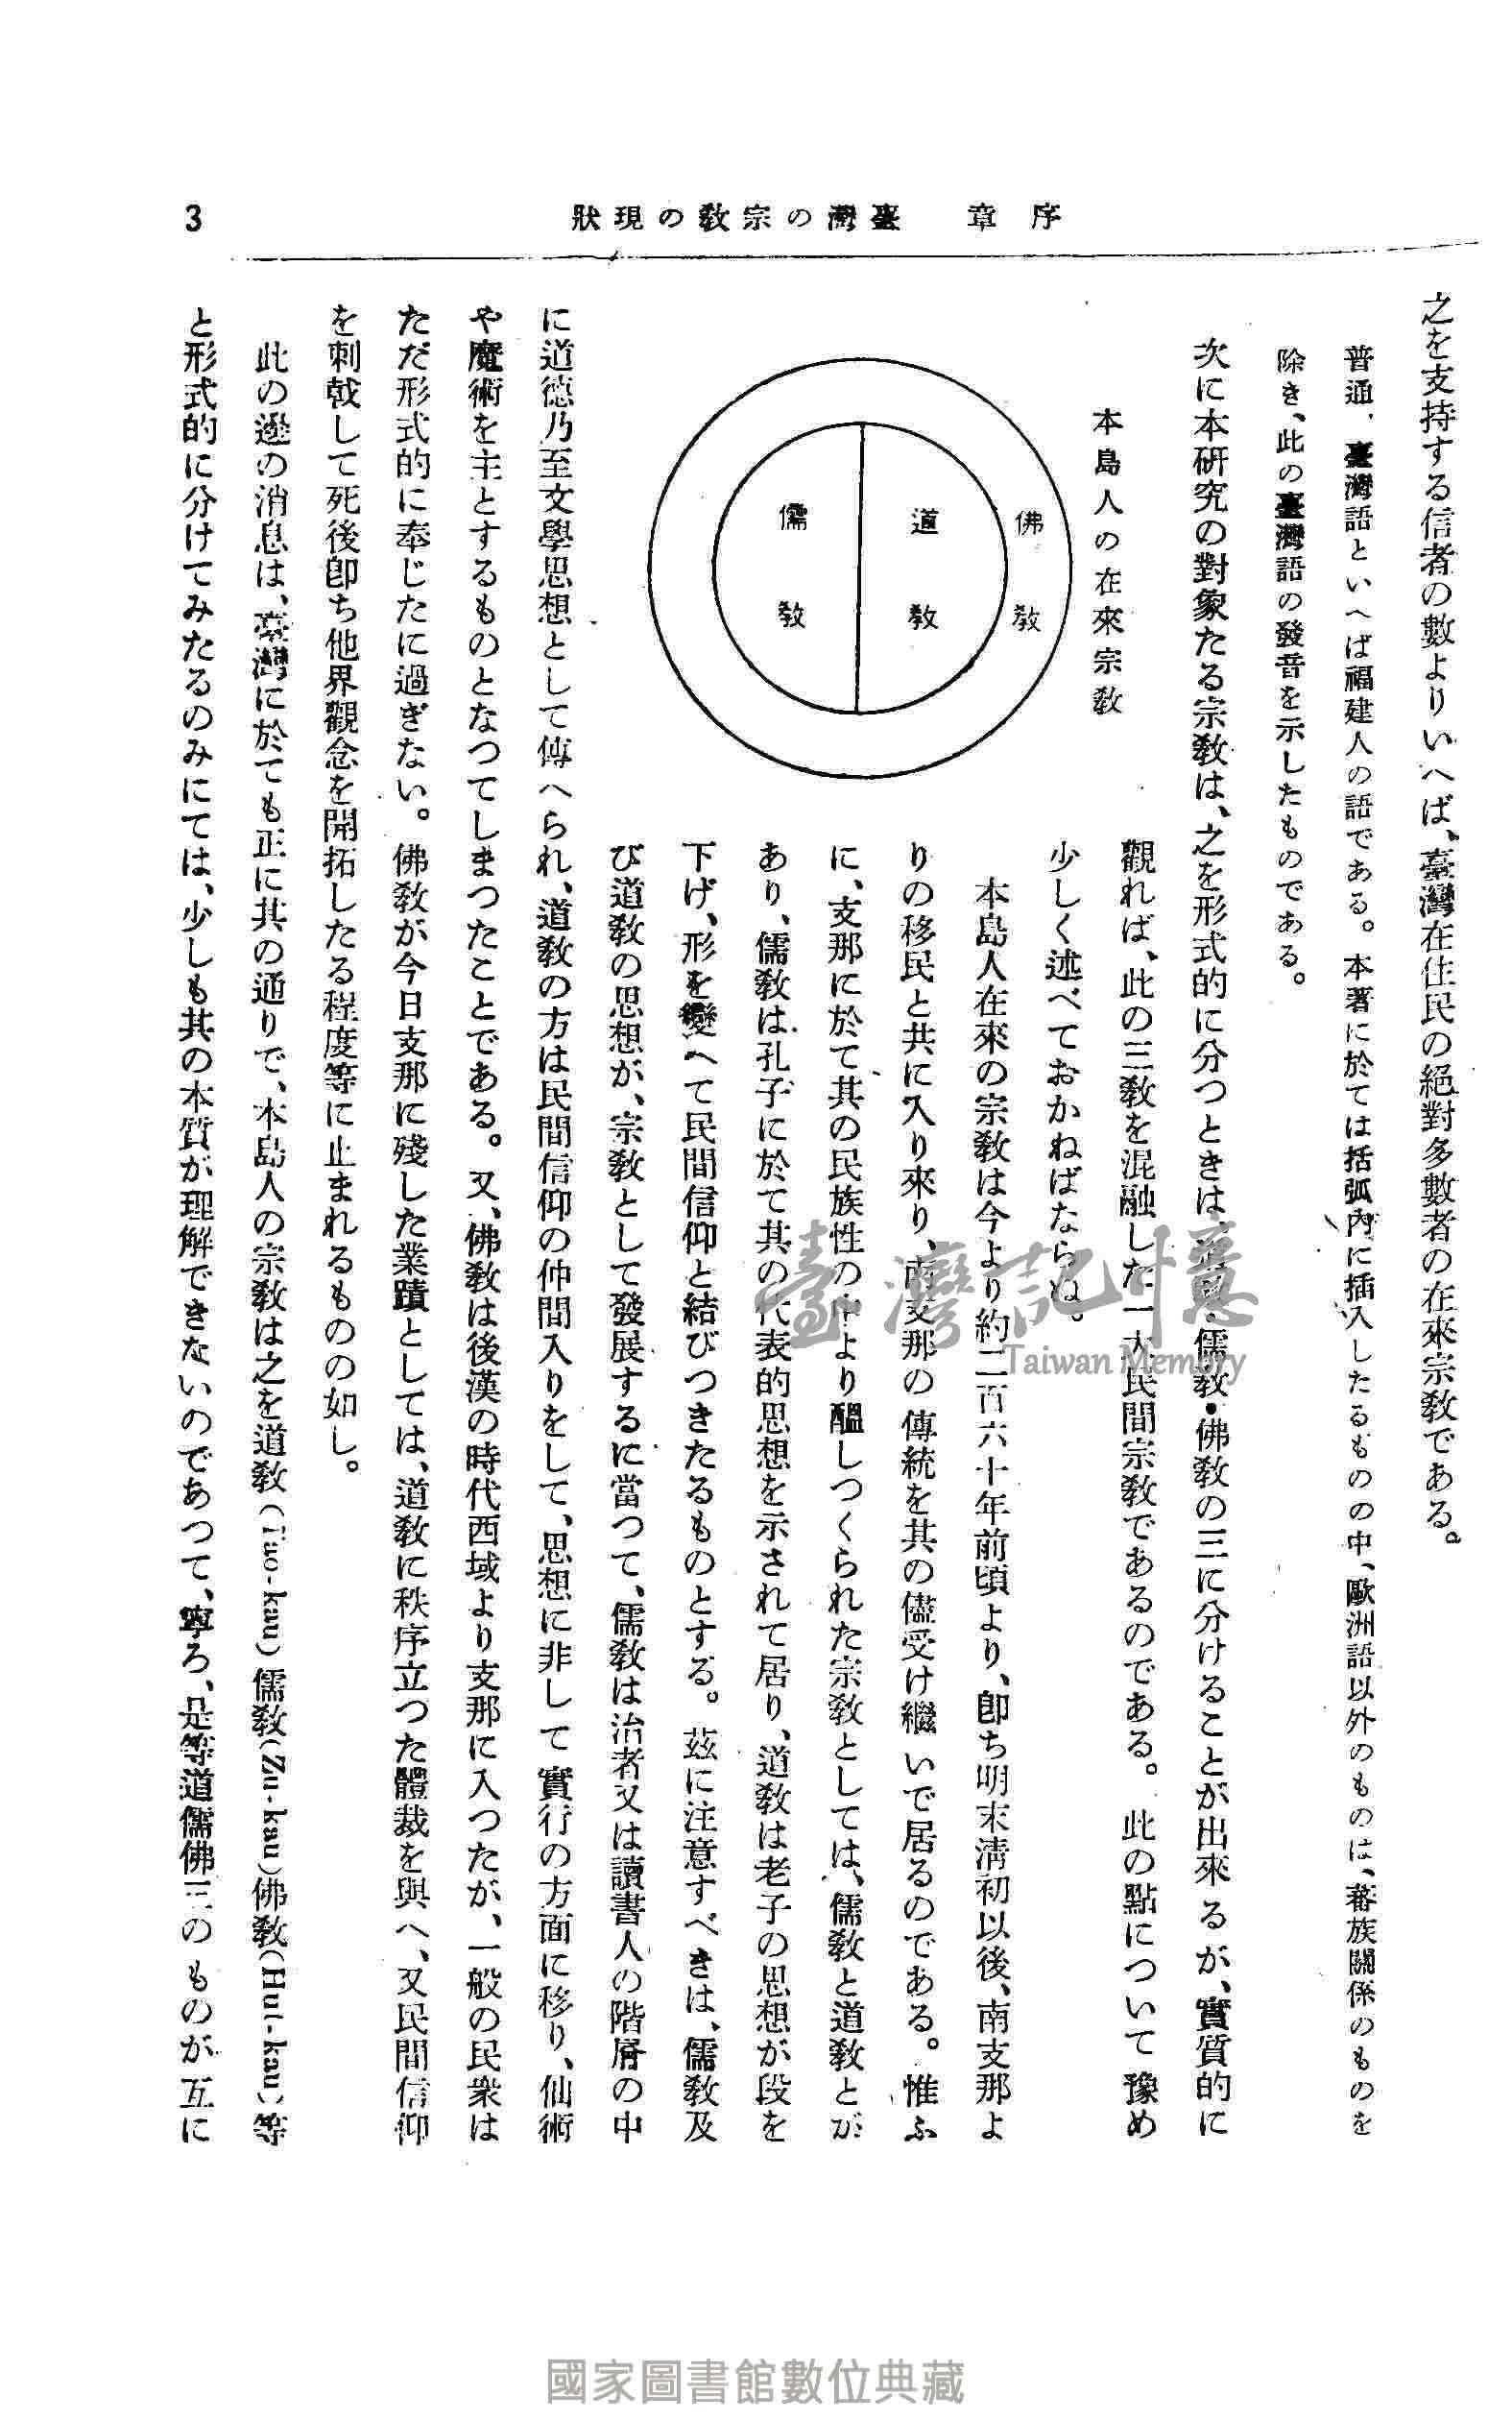 序章　臺灣の宗教の現狀
3
之を支持する信者の數よりいへば、臺灣在住民の絕對多數者の在來宗教である。
普通、臺灣語といへば福建人の語である。本著に於ては括弧內に插入したるものの中、歐洲語以外のものは、蕃族關係のものを
除き、此の臺灣語の發音を示したものである。
次に本研究の對象たる宗教は、之を形式的に分つときは、道教・儒教・佛教の三に分けることが出來るが、實質的に
觀れば、此の三教を混融した一大民間宗教であるのである。此の點について豫め
少しく述べておかねばならぬ。
本島人の在來宗教
佛教
道教
儒教
本島人在來の宗教は今より約二百六十年前頃より、卽ち明末淸初以後、南支那よ
りの移民と共に入り來り、南支那の傳統を其の儘受け繼いで居るのである。惟ふ
に、支那に於て其の民族性の中より醞しつくられた宗教としては、儒教と道教とが
あり、儒教は孔子に於て其の代表的思想を示されて居り、道教は老子の思想が段を
下げ、形を變へて民間信仰と結びつきたるものとする。玆に注意すべきは、儒教及
び道教の思想が、宗教として發展するに當つて、儒教は治者又は讀書人の階層の中
に道德乃至文學思想として傳へられ、道教の方は民間信仰の仲間入りをして、思想に非して實行の方面に移り、仙術
や魔術を主とするものとなつてしまつたことである。又、佛教は後漢の時代西域より支那に入つたが、一般の民衆は
ただ形式的に奉じたに過ぎない。佛教が今日支那に殘した業蹟としては、道教に秩序立つた體裁を與へ、又民間信仰
を刺戟して死後卽ち他界觀念を開拓したる程度等に止まれるものの如し。
此の邊の消息は、臺灣に於ても正に其の通りで、本島人の宗教は之を道教(Tao-kau)儒教(Zu-kau)佛教(Hut-kau)等
と形式的に分けてみたるのみにては、少しも其の本質が理解できないのであつて、寧ろ、是等道儒佛三のものが互に
臺灣記憶
Taiwan Memory
國家圖書館數位典藏